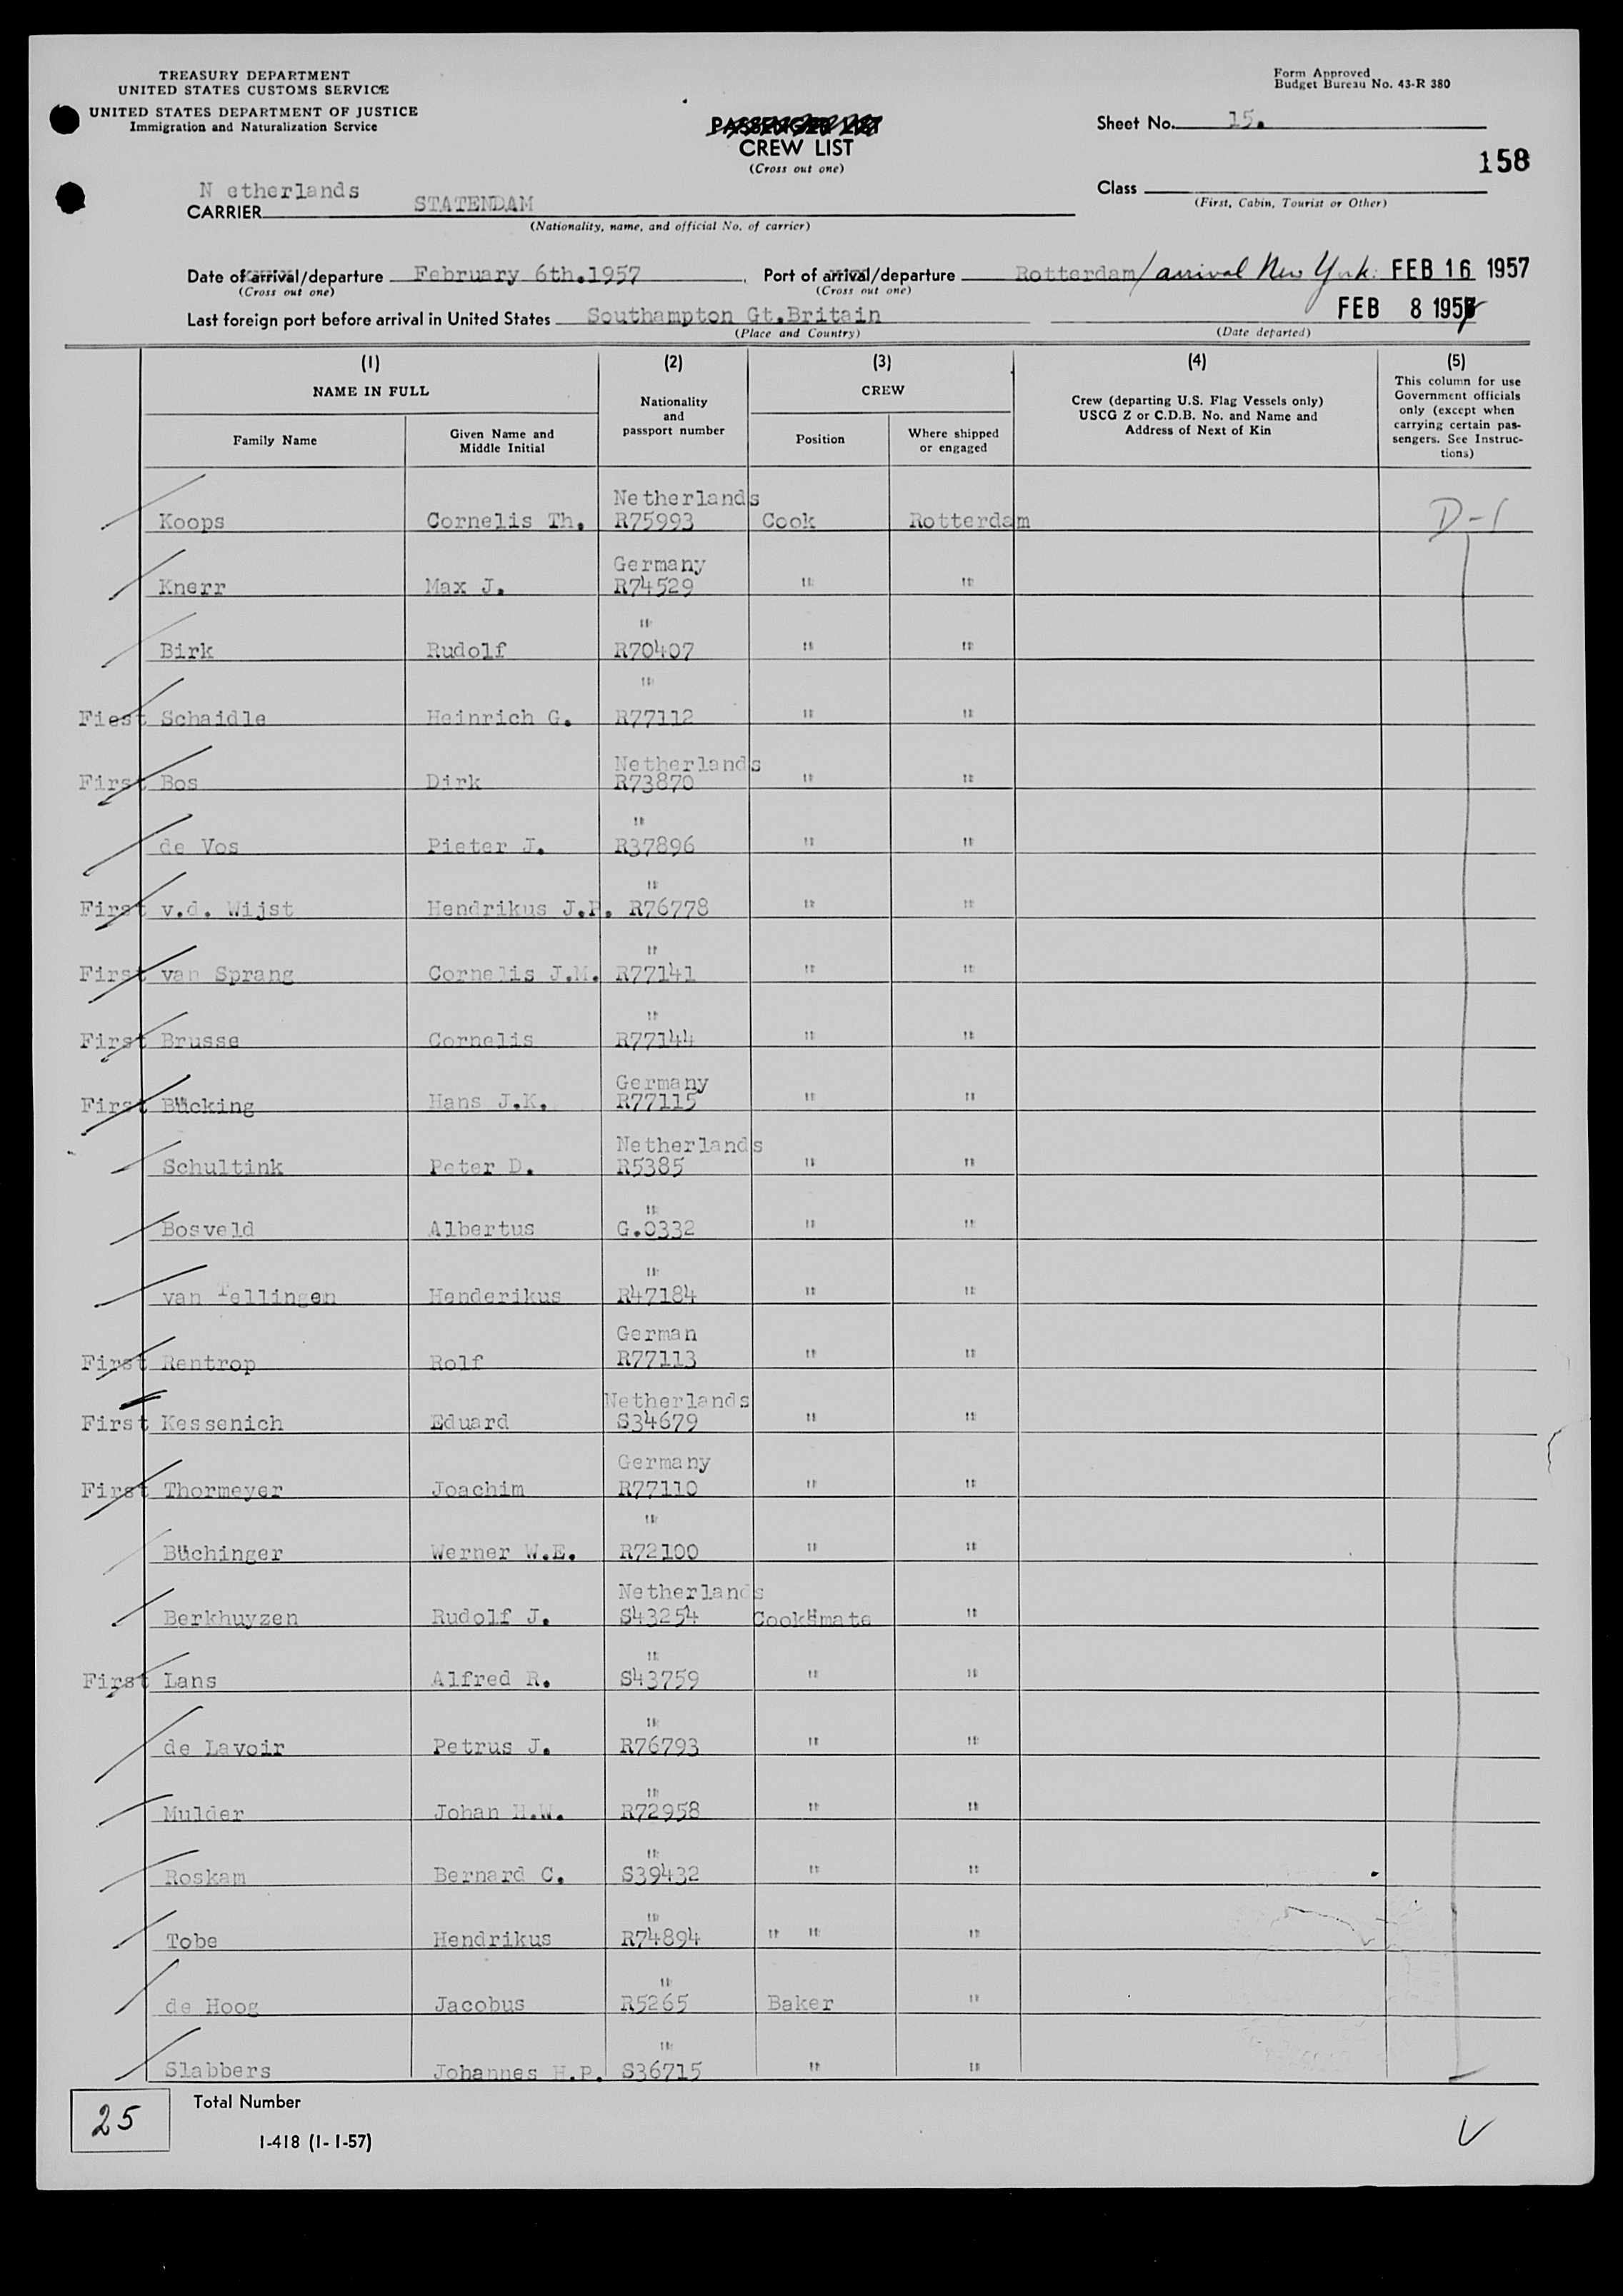 TREASURY DEPARTMENT
UNITED STATES CUSTOMS SERVICE
UNITED STATES DEPARTMENT OF JUSTICE
Immigration and Naturalization Service
Form Approved
Budget Bureau No. 43-R 380
PASSENGER LIST
CREW LIST
(Cross out one)
Sheet No. 15.
158
Class
(First, Cabin, Tourist or Other)
CARRIER N etherlands STATENDAM
(Nationality, name, and official No. of carrier)
Date of arrival/departure February 6th.1957. Port of arrival/departure Rotterdam/arrival New York: FEB 16 1957
(Cross out one) (Cross out one)
Last foreign port before arrival in United States Southampton Gt.Britain FEB 8 1957
(Place and Country) (Date departed)
(1) (2) (3) (4) (5)
NAME IN FULL
Family Name
Given Name and
Middle Initial
Nationality
and
passport number
CREW
Position
Where shipped
or engaged
Crew (departing U.S. Flag Vessels only)
USCG Z or C.D.B. No. and Name and
Address of Next of Kin
This column for use
Government officials
only (except when
carrying certain pas-
sengers. See Instruc-
tions)
Netherlands
Koops Cornelis Th. R75993 Cook Rotterdam D-1
Germany
Knerr Max J. R74529 " "
"
Birk Rudolf R70407 " "
"
Fiest Schaidle Heinrich G. R77112 " "
Netherlands
First Bos Dirk R73870 " "
"
de Vos Pieter J. R37896 " "
"
First v.d. Wijst Hendrikus J.P. R76778 " "
"
First van Sprang Cornelis J.M. R77141 " "
"
First Brusse Cornelis R77144 " "
Germany
First Bücking Hans J.K. R77115 " "
Netherlands
Schultink Peter D. R5385 " "
"
Bosveld Albertus G.0332 " "
"
van Tellingen Henderikus R47184 " "
German
First Rentrop Rolf R77113 " "
Netherlands
First Kessenich Eduard S34679 " "
Germany
First Thormeyer Joachim R77110 " "
"
Büchinger Werner W.E. R72100 " "
Netherlands
Berkhuyzen Rudolf J. S43254 Cooksmate "
"
First Lans Alfred R. S43759 " "
"
de Lavoir Petrus J. R76793 " "
"
Mulder Johan H.W. R72958 " "
"
Roskam Bernard C. S39432 " "
"
Tobe Hendrikus R74894 " " "
"
de Hoog Jacobus R5265 Baker "
"
Slabbers Johannes H.P. S36715 " "
25 Total Number
I-418 (1-1-57)